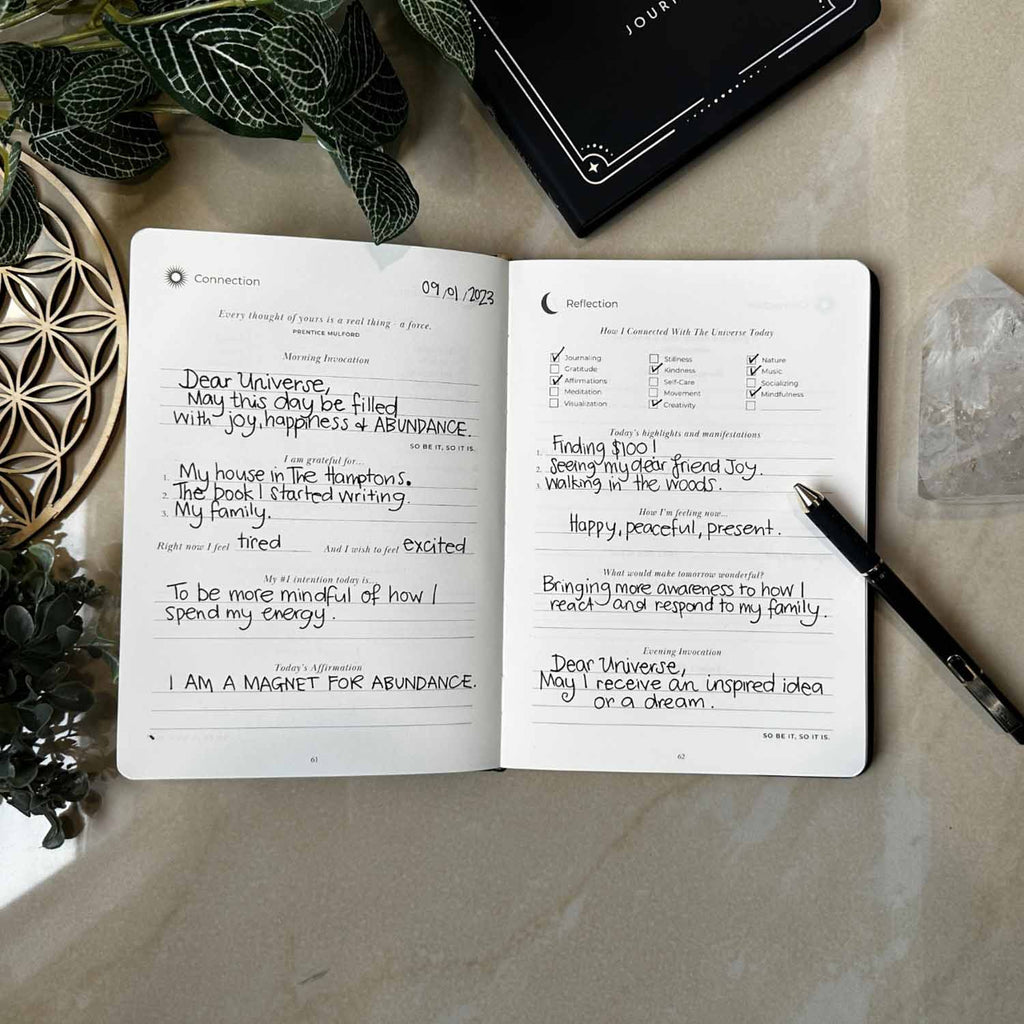 JOUR
Connection
09/01/2023
Every thought of yours is a real thing - a force.
PRENTICE MULFORD
Morning Invocation
Dear Universe,
May this day be filled
with joy, happiness & ABUNDANCE.
SO BE IT, SO IT IS.
I am grateful for...
1. My house in The Hamptons.
2. The book I started writing.
3. My family.
Right now I feel tired And I wish to feel excited
My #1 intention today is...
To be more mindful of how I
spend my energy.
Today's Affirmation
I AM A MAGNET FOR ABUNDANCE.
61
Reflection
How I Connected With The Universe Today
Journaling Stillness Nature
Gratitude Kindness Music
Affirmations Self-Care Socializing
Meditation Movement Mindfulness
Visualization Creativity
Today's highlights and manifestations
1. Finding $100!
2. Seeing my dear friend Joy.
3. Walking in the woods.
How I'm feeling now...
Happy, peaceful, present.
What would make tomorrow wonderful?
Bringing more awareness to how I
react and respond to my family.
Evening Invocation
Dear Universe,
May I receive an inspired idea
or a dream.
SO BE IT, SO IT IS.
62